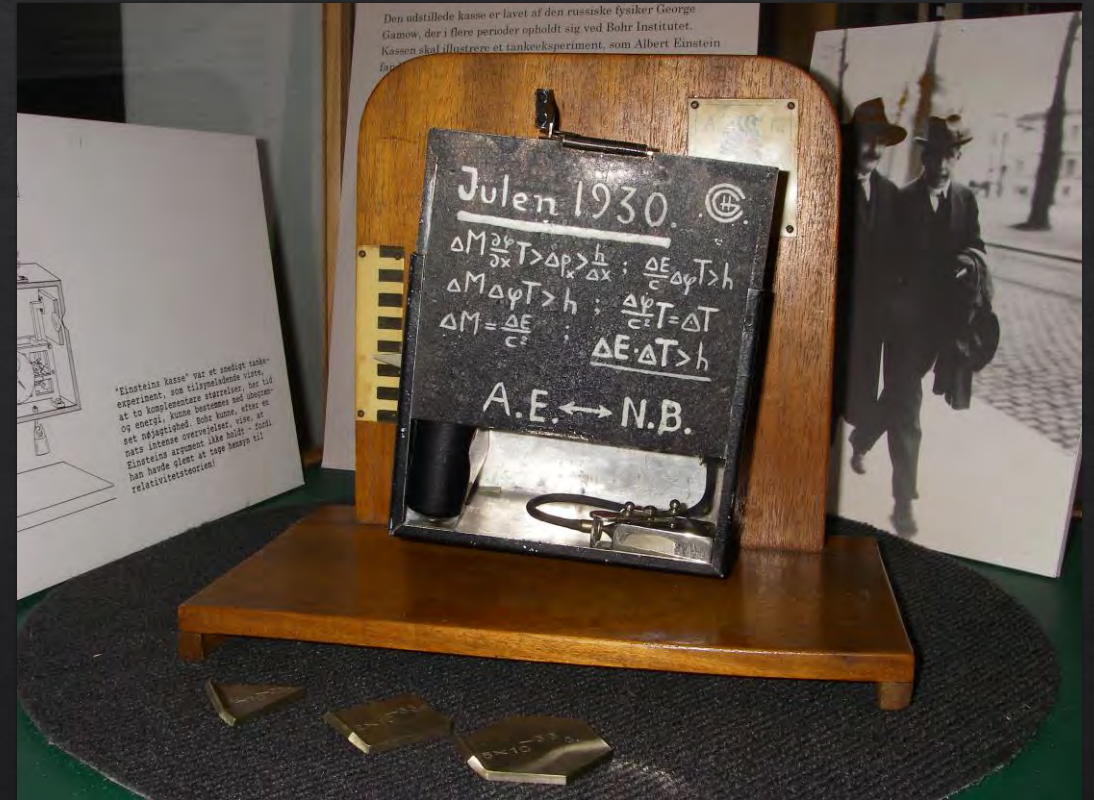 Den udstillede kasse er lavet af den russiske fysiker George
Gamow, der i flere perioder opholdt sig ved Bohr Institutet.
Kassen skal illustrere et tankeeksperiment, som Albert Einstein
Julen 1930.
ΔM ∂φ/∂x T > Δpₓ > h/Δx ; ΔE/c ΔφT > h
ΔMΔφT > h ; Δφ/c² T = ΔT
ΔM = ΔE/c² ; ΔE·ΔT > h
A.E. ↔ N.B.
"Einsteins kasse" var et snedigt tanke-
experiment, som tilsyneladende viste,
at to komplementære størrelser, her tid
og energi, kunne bestemmes med ubegræn-
set nøjagtighed. Bohr kunne, efter en
nats intense overvejelser, vise, at
Einsteins argument ikke holdt - fordi
han havde glemt at tage hensyn til
relativitetsteorien!